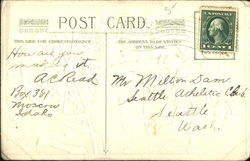 POST CARD.
THIS SIDE FOR CORRESPONDENCE
THE ADDRESS TO BE WRITTEN ON THIS SIDE.
How are you
making it.
A C Read
Box 381
Moscow
Idaho
Mr Milton Dam
Seattle Athletic Club
Seattle
Wash.